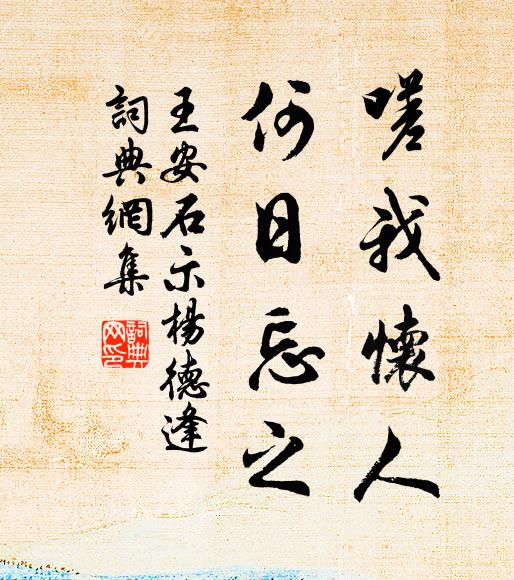 嗟我懷人
何日忘之
王安石示楊德逢
詞典網集
詞典
網印